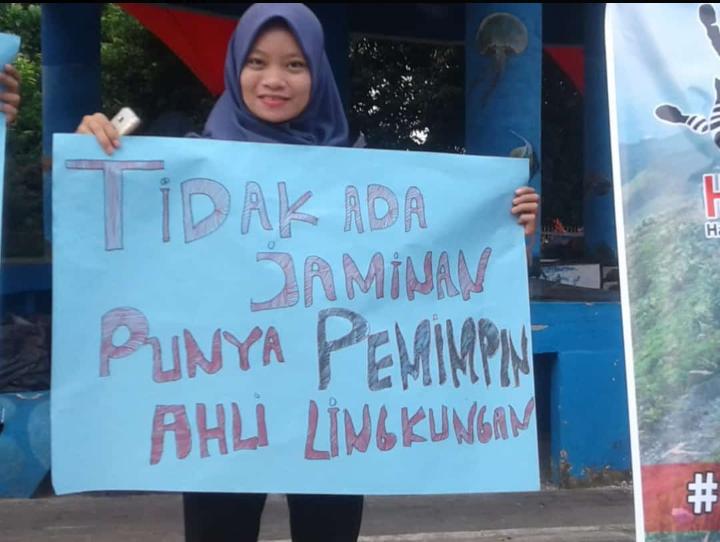 TIDAK ADA
JAMINAN
PUNYA PEMIMPIN
AHLI LINGKUNGAN
#